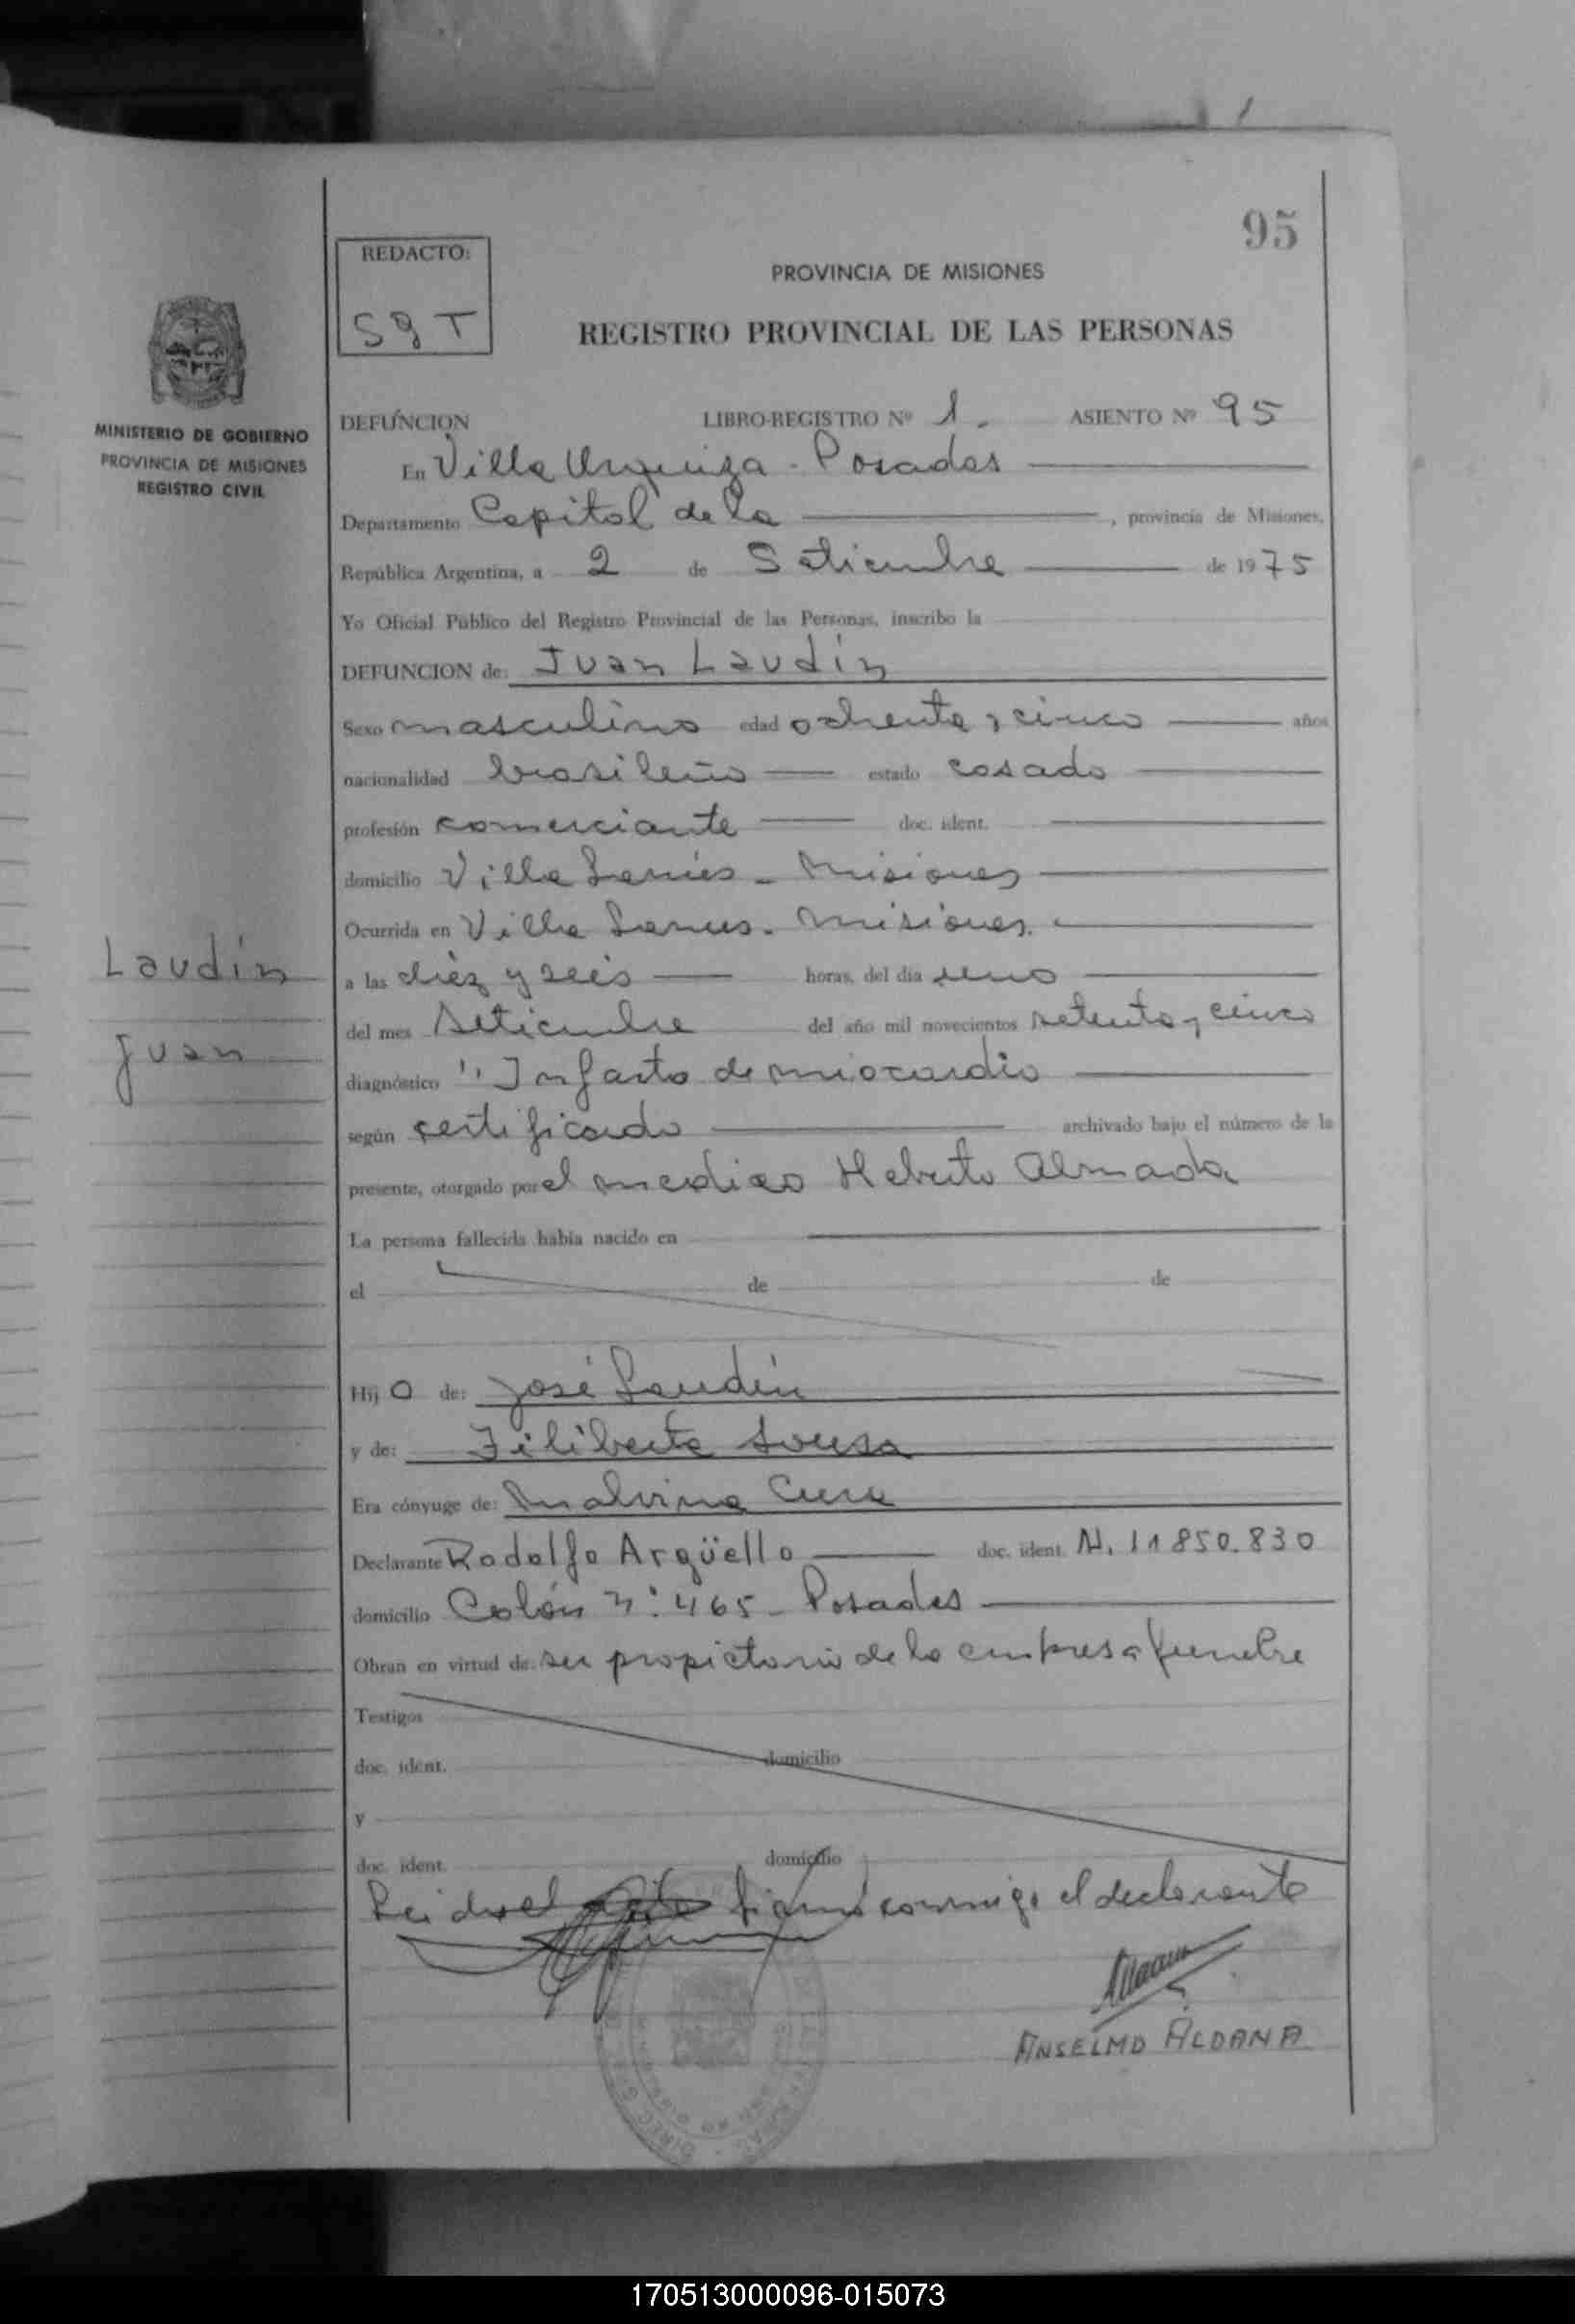 95
REDACTO:
PROVINCIA DE MISIONES
SgT
REGISTRO PROVINCIAL DE LAS PERSONAS
MINISTERIO DE GOBIERNO
PROVINCIA DE MISIONES
REGISTRO CIVIL
DEFUNCION LIBRO-REGISTRO Nº 1. ASIENTO Nº 95
En Villa Urquiza - Posadas
Departamento Capital de la , provincia de Misiones,
República Argentina, a 2 de Setiembre de 1975
Yo Oficial Público del Registro Provincial de las Personas, inscribo la
DEFUNCION de: Juan Laudín
Sexo masculino edad ochenta y cinco años
nacionalidad brasileño estado casado
profesión comerciante doc. ident.
domicilio Villa Lanús - Misiones
Ocurrida en Villa Lanus. Misiones.
Laudín
a las diez y seis horas, del día uno
Juan
del mes Setiembre del año mil novecientos setenta y cinco
diagnóstico " Infarto de miocardio
según certificado archivado bajo el número de la
presente, otorgado por el medico Heberto Almada
La persona fallecida había nacido en
el de de
Hijo de: José Laudín
y de: Filiberta Sousa
Era cónyuge de: Malvina Cura
Declarante Rodolfo Argüello doc. ident. N. 11850.830
domicilio Colón nº 465 - Posadas
Obran en virtud de: ser propietario de la empresa funebre
Testigos
doc. ident. domicilio
y
doc. ident. domicilio
Leida el firmó conmigo el declarante
ANSELMO ALDANA
170513000096-015073